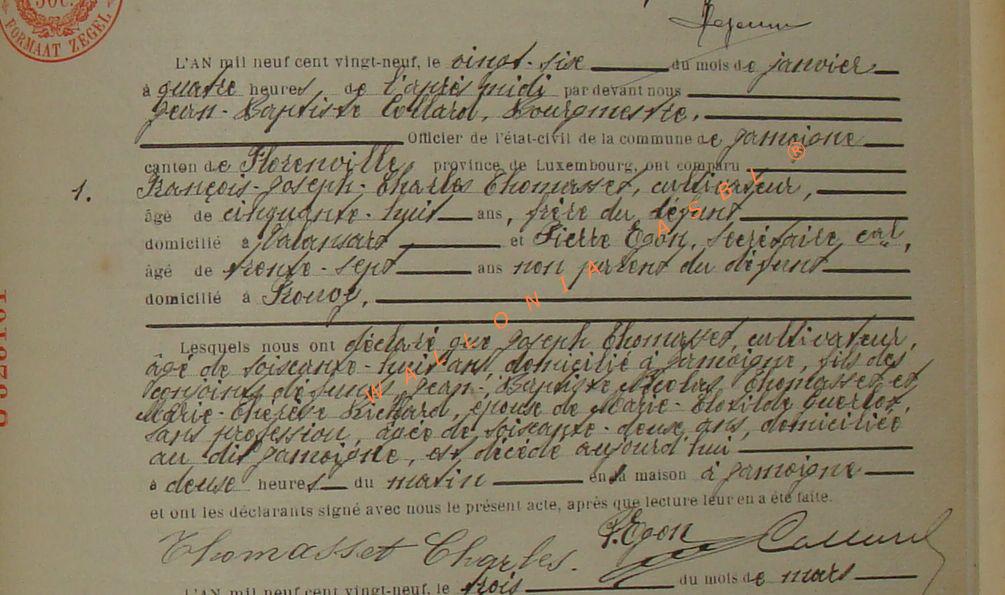 50C.
FORMAAT ZEGEL
L'AN mil neuf cent vingt-neuf, le vingt-six du mois de janvier
à quatre heures de l'après midi par devant nous
Jean-Baptiste Collard, Bourgmestre,
Officier de l'état-civil de la commune de Jamoigne
canton de Florenville, province de Luxembourg, ont comparu
1. François-Joseph-Charles Thomasset, cultivateur,
âgé de cinquante-huit ans, frère du défunt
domicilié à Valansart et Pierre Egon, secrétaire cal,
âgé de trente-sept ans non parent du défunt
domicilié à Prouvy,
Lesquels nous ont déclaré que Joseph Thomasset, cultivateur,
âgé de soixante-huit ans domicilié à Jamoigne, fils des
conjoints défunts Jean-Baptiste Nicolas Thomasset et
Marie-Thérèse Richard, époux de Marie-Clotilde
sans profession, âgée de soixante-deux ans, domiciliée
au dit Jamoigne, est décédé aujourd'hui
à deux heures du matin en sa maison à Jamoigne
et ont les déclarants signé avec nous le présent acte, après que lecture leur en a été faite.
Thomasset Charles. P. Egon Collard
L'AN mil neuf cent vingt-neuf, le trois du mois de mars
WALLONIA ASBL ®